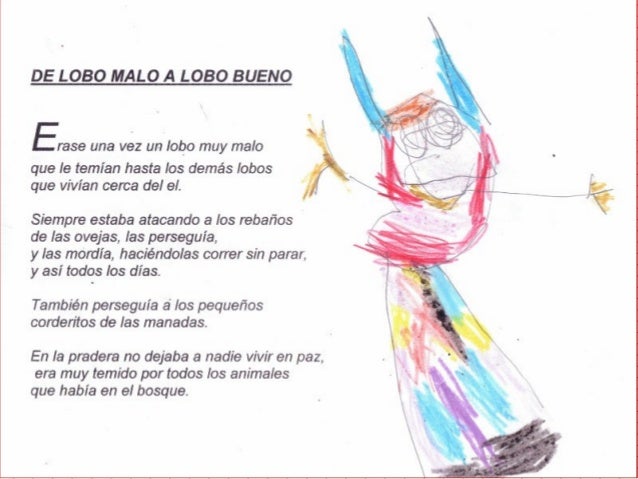 DE LOBO MALO A LOBO BUENO
Erase una vez un lobo muy malo
que le temían hasta los demás lobos
que vivían cerca del el.
Siempre estaba atacando a los rebaños
de las ovejas, las perseguía,
y las mordía, haciéndolas correr sin parar,
y así todos los días.
También perseguía á los pequeños
corderitos de las manadas.
En la pradera no dejaba a nadie vivir en paz,
era muy temido por todos los animales
que había en el bosque.